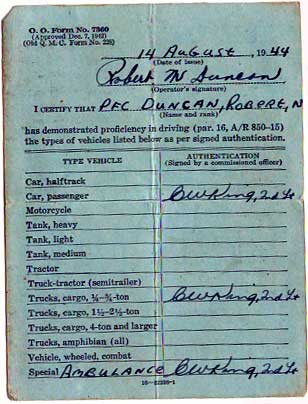 O. O. Form No. 7360
(Approved Dec. 7, 1942)
(Old Q. M. C. Form No. 228)
14 August, 1944
(Date of issue)
Robert M Duncan
(Operator's signature)
I CERTIFY THAT PFC DUNCAN, ROBERT, M
(Name and rank)
has demonstrated proficiency in driving (par. 16, A/R 850-15)
the types of vehicles listed below as per signed authentication.
TYPE VEHICLE AUTHENTICATION
(Signed by a commissioned officer)
Car, halftrack
Car, passenger CW King, 2nd Lt
Motorcycle
Tank, heavy
Tank, light
Tank, medium
Tractor
Truck-tractor (semitrailer)
Trucks, cargo, ¼-¾-ton CW King, 2nd Lt
Trucks, cargo, 1½-2½-ton
Trucks, cargo, 4-ton and larger
Trucks, amphibian (all)
Vehicle, wheeled, combat
Special AMBULANCE CW King, 2nd Lt